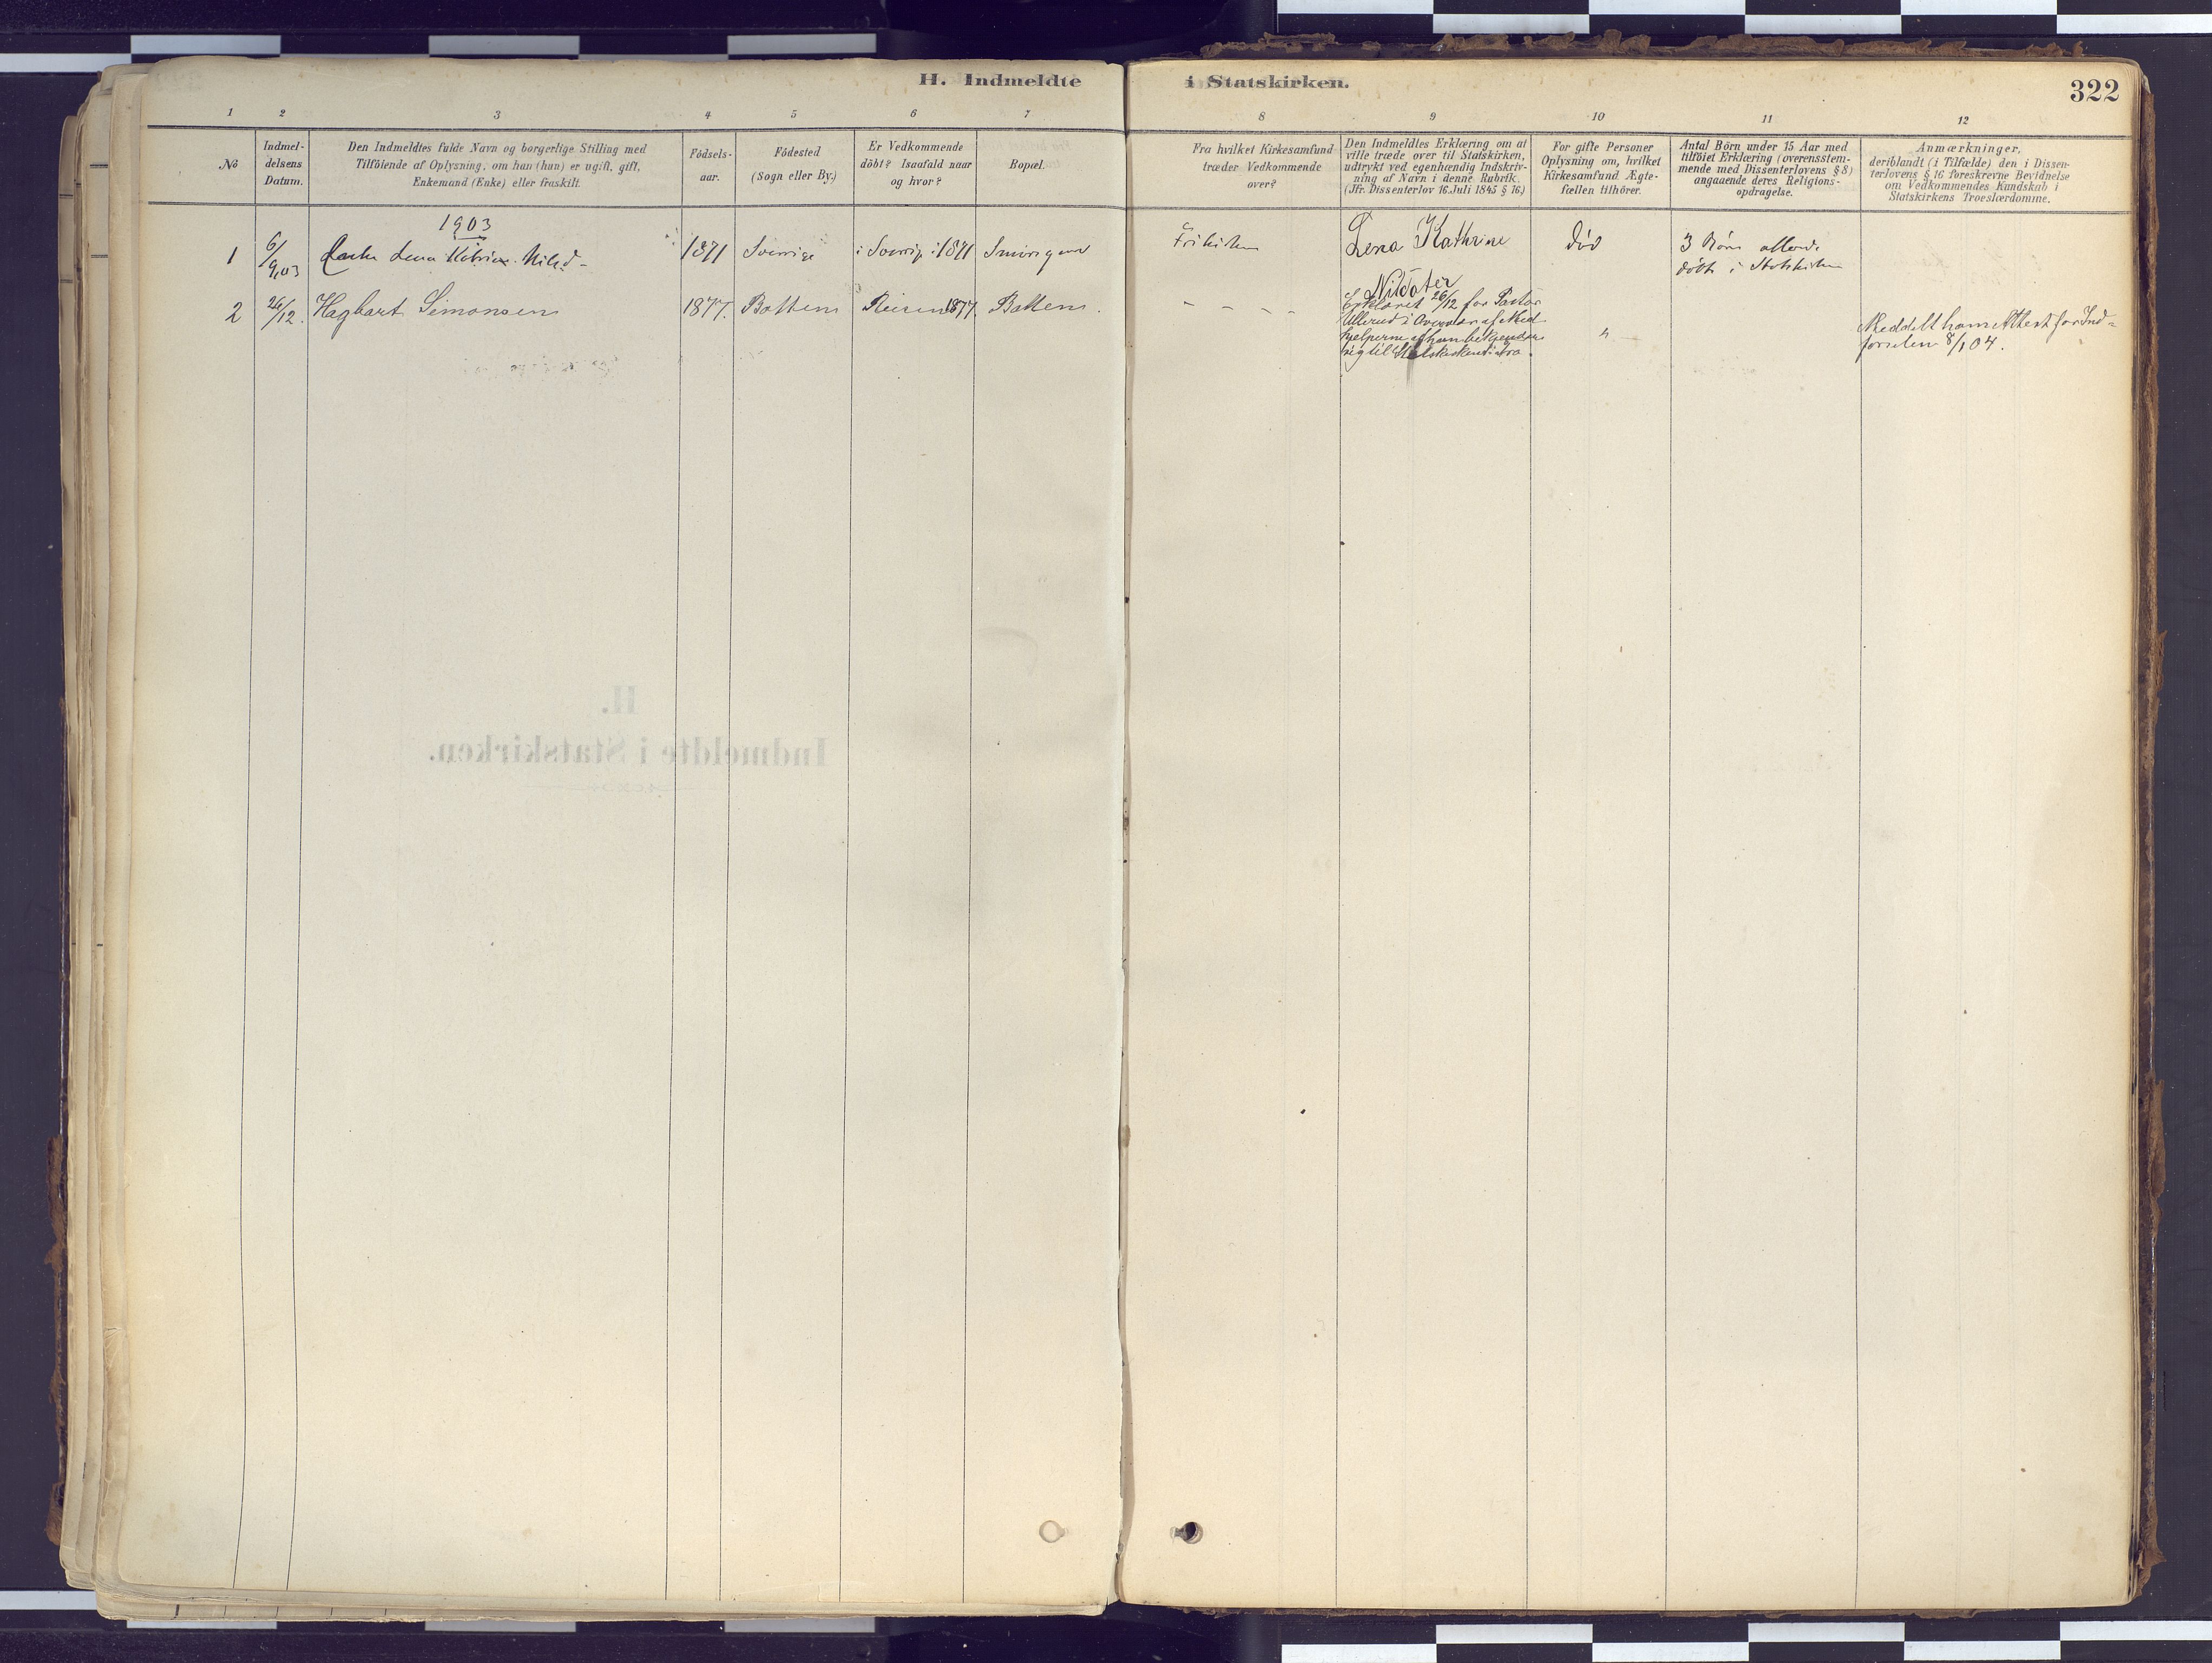 H. Indmeldte i Statskirken. 322
1 2 3 4 5 6 7 8 9 10 11 12
No
Indmel-
delsens
Datum.
Den Indmeldtes fulde Navn og borgerlige Stilling med
Tilföiende af Oplysning, om han (hun) er ugift, gift,
Enkemand (Enke) eller fraskilt.
Födsels-
aar.
Födested
(Sogn eller By.)
Er Vedkommende
döbt? Isaafald naar
og hvor?
Bopæl.
Fra hvilket Kirkesamfund
træder Vedkommende
over?
Den Indmeldtes Erklæring om at
ville træde over til Statskirken,
udtrykt ved egenhændig Indskriv-
ning af Navn i denne Rubrik.
(Jfr. Dissenterlov 16. Juli 1845 § 16.)
For gifte Personer
Oplysning om, hvilket
Kirkesamfund Ægte-
fællen tilhörer.
Antal Börn under 15 Aar med
tilföiet Erklæring (overensstem-
mende med Dissenterlovens § 8)
angaaende deres Religions-
opdragelse.
Anmærkninger,
deriblandt (i Tilfælde) den i Dissen-
terlovens § 16 foreskrevne Bevidnelse
om Vedkommendes Kundskab i
Statskirkens Troeslærdomme.
1903
1 6/9 03 Enke Lena 1871 Sverrige i Sverrig i 1871
Frikirken
Lena Kathrine
Nilsdater
död
3 Börn allerede
döbte i Statskirken
2 26/12. Hagbart Simonsen 1877. Reisen 1877.
– – – –
Erklæret 26/12 for Pastor
Ullerud i Overvær af Med-
hjelperne at han bekjender
sig til Statskirkens Tro.
"
Meddelt ham Attest for Ind-
förselen 8/1 04.
H.
Indmeldte i Statskirken.